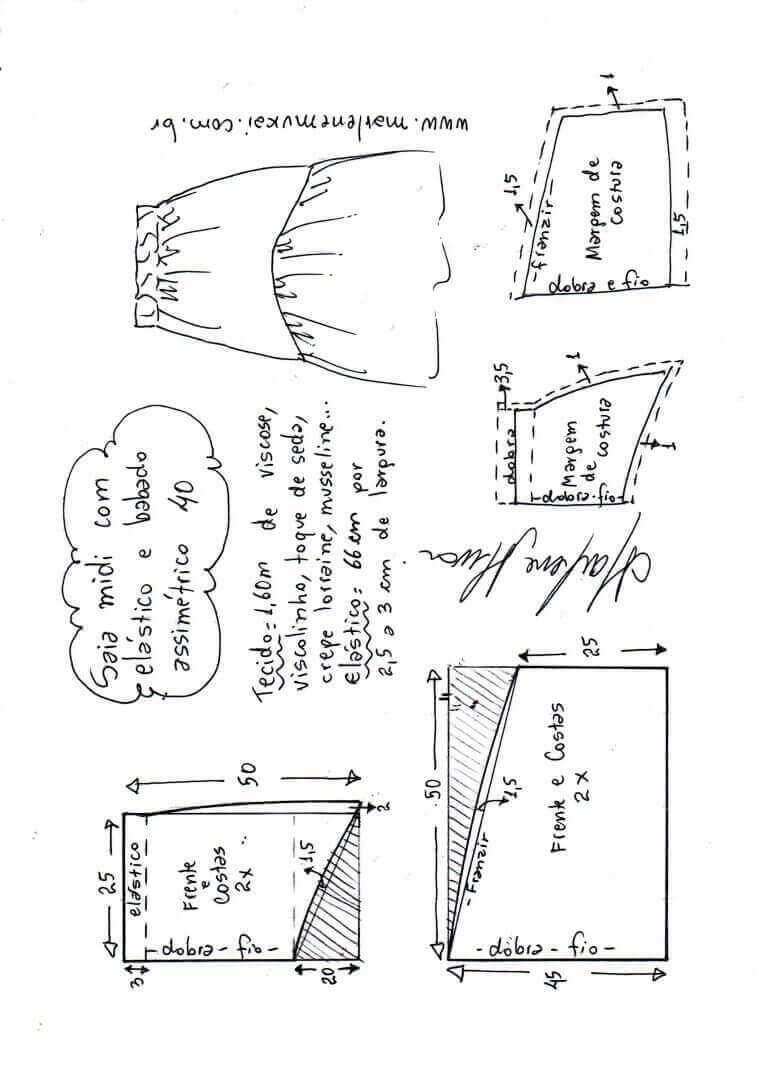 Saia midi com
elástico e babado
assimétrico 40
Tecido= 1,60m de viscose,
viscolinho, toque de seda,
crepe lorraine, musseline...
Elástico= 66 cm por
2,5 a 3 cm de largura.
www.marlenemukai.com.br
25
50
3
20
elástico
Frente
e
Costas
2x
1,5
2
- dobra - fio -
50
25
45
- Franzir
1,5
Frente e Costas
2x
- dobra - fio -
3,5
dobra
1
Margem
de costura
- dobra - fio -
1
1,5
1
- franzir -
Margem de
costura
dobra e fio
1,5